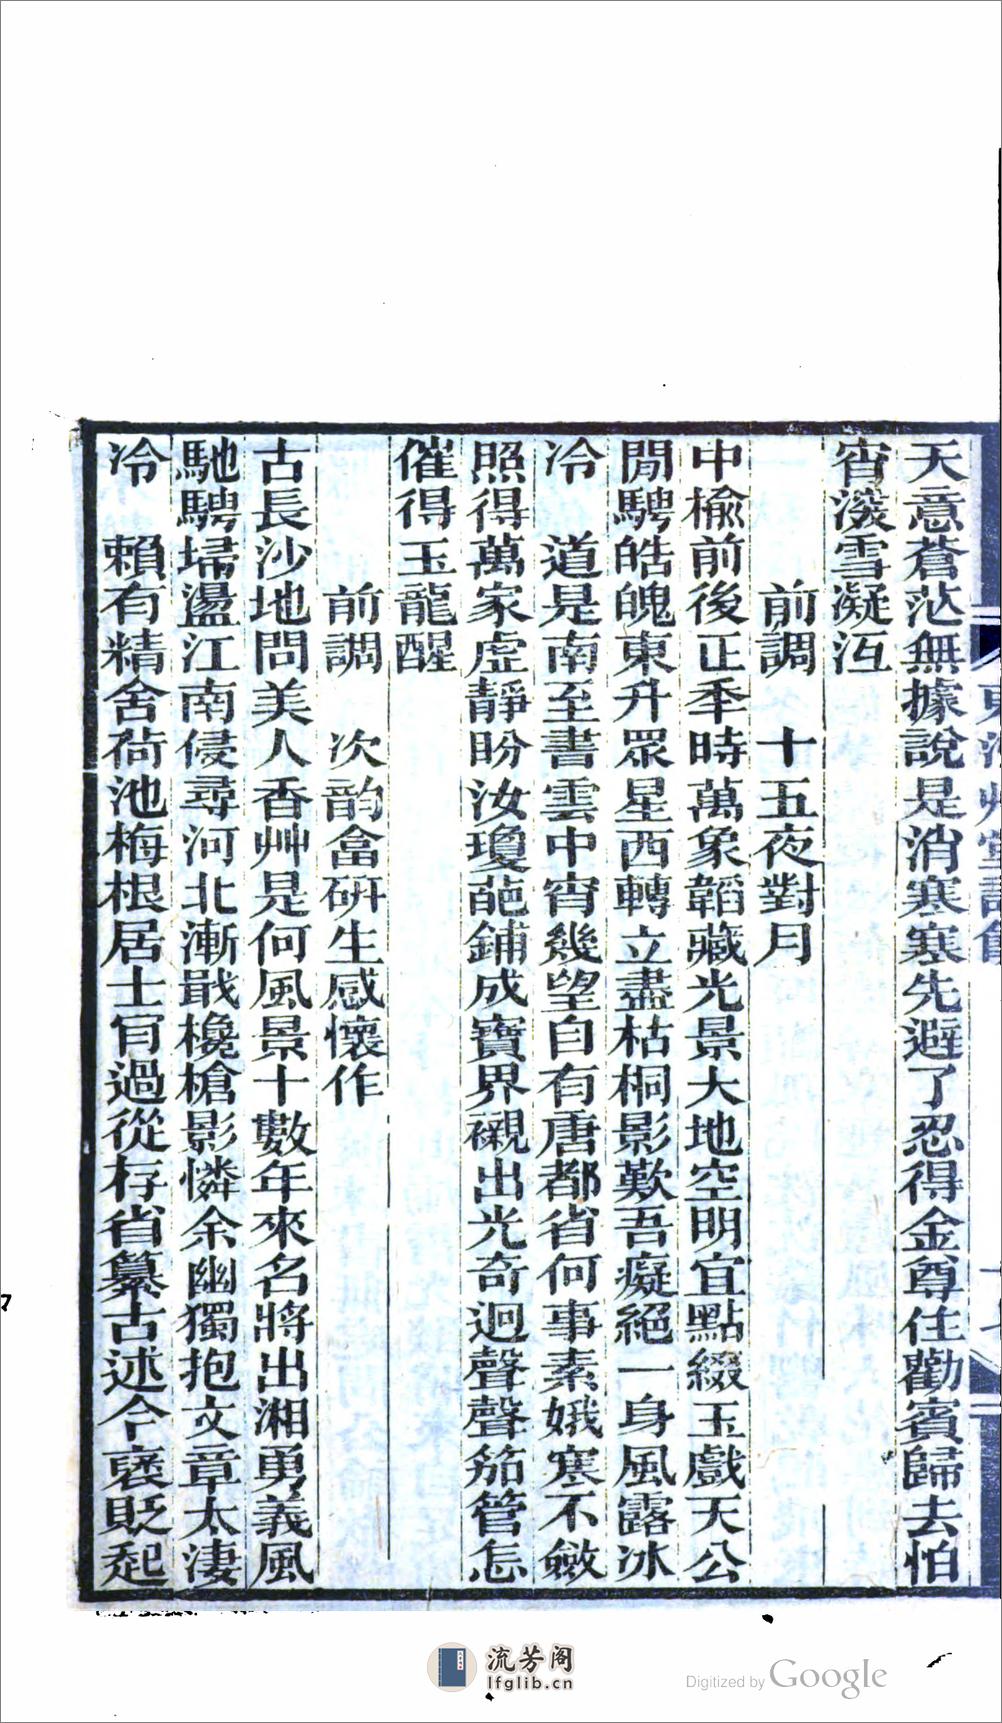 天意蒼茫無據說是消寒寒先避了忍得金尊住勸賓歸去怕
宵潑雪凝沍
前調　十五夜對月
中楡前後正秊時萬象韜藏光景大地空明宜點綴玉戲天公
閒騁皓魄東升眾星西轉立盡枯桐影歎吾癡絕一身風露冰
冷　道是南至書雲中宵幾望自有唐都省何事素娥寒不斂
照得萬家虛靜盼汝瓊葩鋪成寶界襯出光奇迥聲聲笳管怎
催得玉龍醒
前調　次韵㑹研生感懷作
古長沙地問美人香艸是何風景十數年來名將出湘勇義風
馳騁埽盪江南侵尋河北漸戢欃槍影憐余幽獨抱文章太淒
冷　賴有精舍荷池梅根居士肎過從存省纂古述今襃貶起
流芳阁
lfglib.cn
Digitized by Google